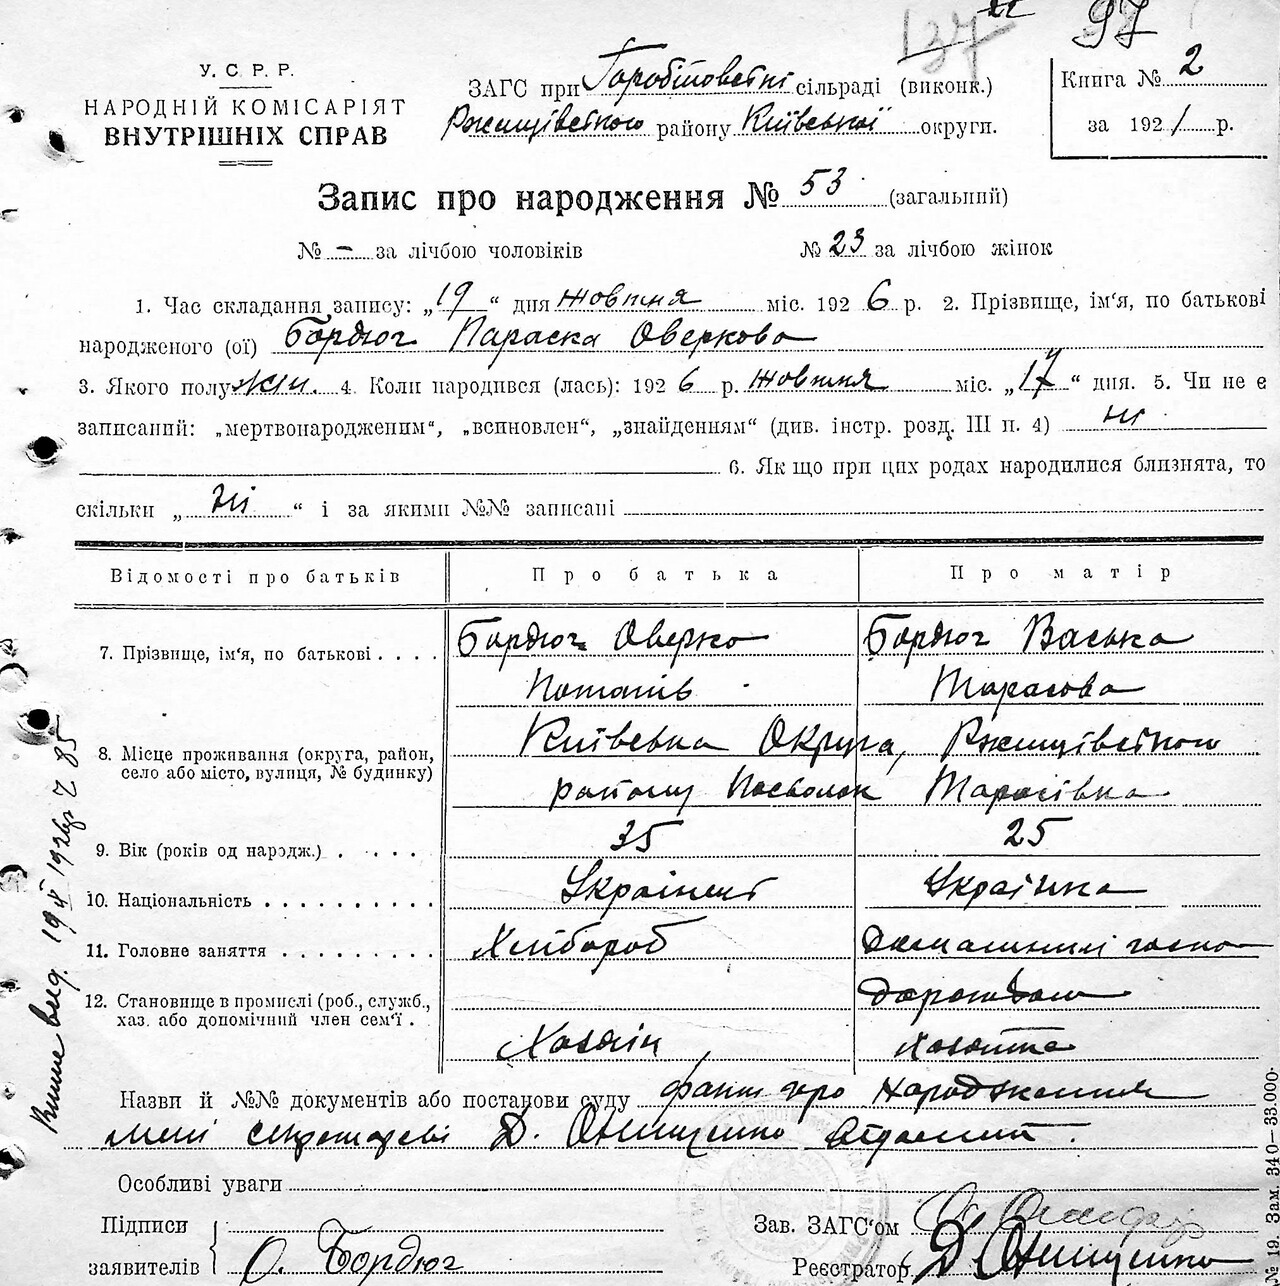 137 97
У. С. Р. Р.
НАРОДНІЙ КОМІСАРІЯТ
ВНУТРІШНІХ СПРАВ
ЗАГС при сільраді (виконк.)
Ржищівського району Київської округи.
Книга № 2
за 1921 р.
Запис про народження № 53 (загальний)
№ – за лічбою чоловіків № 23 за лічбою жінок
1. Час складання запису: „19“ дня жовтня міс. 1926 р. 2. Прізвище, ім'я, по батькові
народженого (ої) Бордюг Параска Оверкова
3. Якого полу жін. 4. Коли народився (лась): 1926 р. жовтня міс. „17“ дня. 5. Чи не є
записаний: „мертвонародженим“, „всиновлен“, „знайденням“ (див. інстр. розд. III п. 4) ні
6. Як що при цих родах народилися близнята, то
скільки „ні“ і за якими №№ записані
Відомості про батьків Про батька Про матір
7. Прізвище, ім'я, по батькові . . . . Бордюг Оверко Бордюг Васька
Потапів Тарасова
8. Місце проживання (округа, район,
село або місто, вулиця, № будинку)
Київська Округа, Ржищівського
району Посьолок Тарасівка
9. Вік (років од народж.) . . . . 35 25
10. Національність . . . . . . . . . . Українець Українка
11. Головне заняття . . . . . . . . . Хлібороб Домашнім госпо
дарством
12. Становище в промислі (роб., служб.,
хаз. або допомічний член сем'ї .
Хазяїн Хазяйка
Назви й №№ документів або постанови суду факт про народження
мені секретареві Д. Онищенко
Особливі уваги
Підписи
заявителів
О. Бордюг
Зав. ЗАГС'ом
Реєстратор Д. Онищенко
№ 19. Зам. 340—33.000.